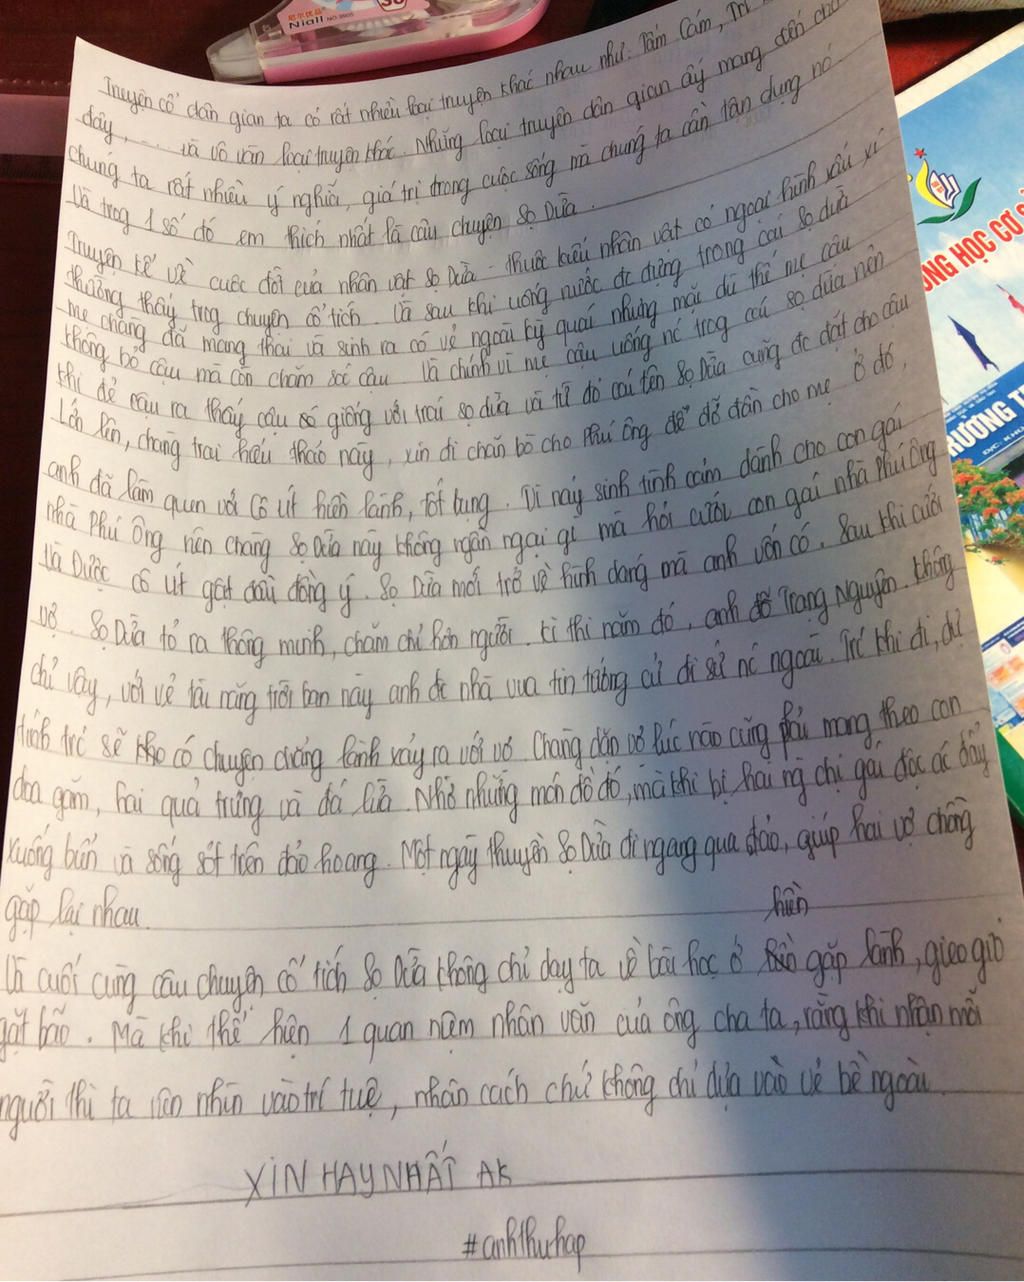 Niall NO.9905
Truyện cổ dân gian ta có rất nhiều loại truyện khác nhau như: Tấm Cám, Trí
dây, .... và vô vàn loại truyện khác. Những loại truyện dân gian ấy mang đến cho
chúng ta rất nhiều ý nghĩa, giá trị trong cuộc sống mà chúng ta cần tận dụng nó
Và trog 1 số đó em thích nhất là câu chuyện Sọ Dừa.
Truyện kể về cuộc đời của nhân vật Sọ Dừa - thuộc kiểu nhân vật có ngoại hình xấu xí
thường thấy trog chuyện cổ tích. Và sau khi uống nước đc đựng trong cái sọ dừa
mẹ chàng đã mang thai và sinh ra có vẻ ngoài kỳ quái nhưng mặc dù thế mẹ cậu
không bỏ cậu mà còn chăm sóc cậu. Và chính vì mẹ cậu uống nc trog cái sọ dừa nên
khi đẻ cậu ra thấy cậu có giống với trái sọ dừa và từ đó cái tên Sọ Dừa cũng đc đặt cho cậu
Lớn lên, chàng trai hiếu thảo này, xin đi chăn bò cho Phú Ông để đỡ đần cho mẹ. Ở đó,
anh đã làm quen với Cô út hiền lành, tốt bụng. Vì nảy sinh tình cảm dành cho con gái
nhà Phú Ông nên chàng Sọ Dừa này không ngần ngại gì mà hỏi cưới con gái nhà Phú Ông
Và Được cô út gật đầu đồng ý. Sọ Dừa mới trở về hình dáng mà anh vốn có. Sau khi cưới
vợ. Sọ Dừa tỏ ra thông minh, chăm chỉ hơn người. Kì thi năm đó, anh đỗ Trạng Nguyên. Không
chỉ vậy, với vẻ tài năng trời ban này anh đc nhà vua tin tưởng cử đi sứ nc ngoài. Trc khi đi, dự
tính trc sẽ kho có chuyện chẳng lành xảy ra với vợ. Chàng dặn vợ lúc nào cũng phải mang theo con
dao găm, hai quả trứng và đá lửa. Nhờ những món đồ đó, mà khi bị hai ng chị gái độc ác đẩy
xuống biển và sống sót trên đảo hoang. Một ngày thuyền Sọ Dừa đi ngang qua đảo, giúp hai vợ chồng
gặp lại nhau.
hiền
Và cuối cùng câu chuyện cổ tích Sọ Dừa không chỉ dạy ta về bài học ở gặp lành, gieo gió
gặt bão. Mà khi thể hiện 1 quan niệm nhân văn của ông cha ta, rằng khi nhận mỗi
người thì ta nên nhìn vào trí tuệ, nhân cách chứ không chỉ dựa vào vẻ bề ngoài.
XIN HAY NHẤT AK
#anhthuhap
NG HỌC CƠ S
RƯỜNG T